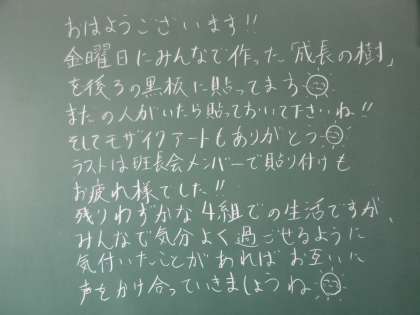 おはようございます!!
金曜日にみんなで作った「成長の樹」
を後ろの黒板に貼ってます
まだの人がいたら貼っておいて下さいね!!
そしてモザイクアートもありがとう
ラストは班長会メンバーで貼り付けも
お疲れ様でした!!
残りわずかな4組での生活ですが、
みんなで気分よく過ごせるように
気付いたことがあればお互いに
声をかけ合っていきましょうね